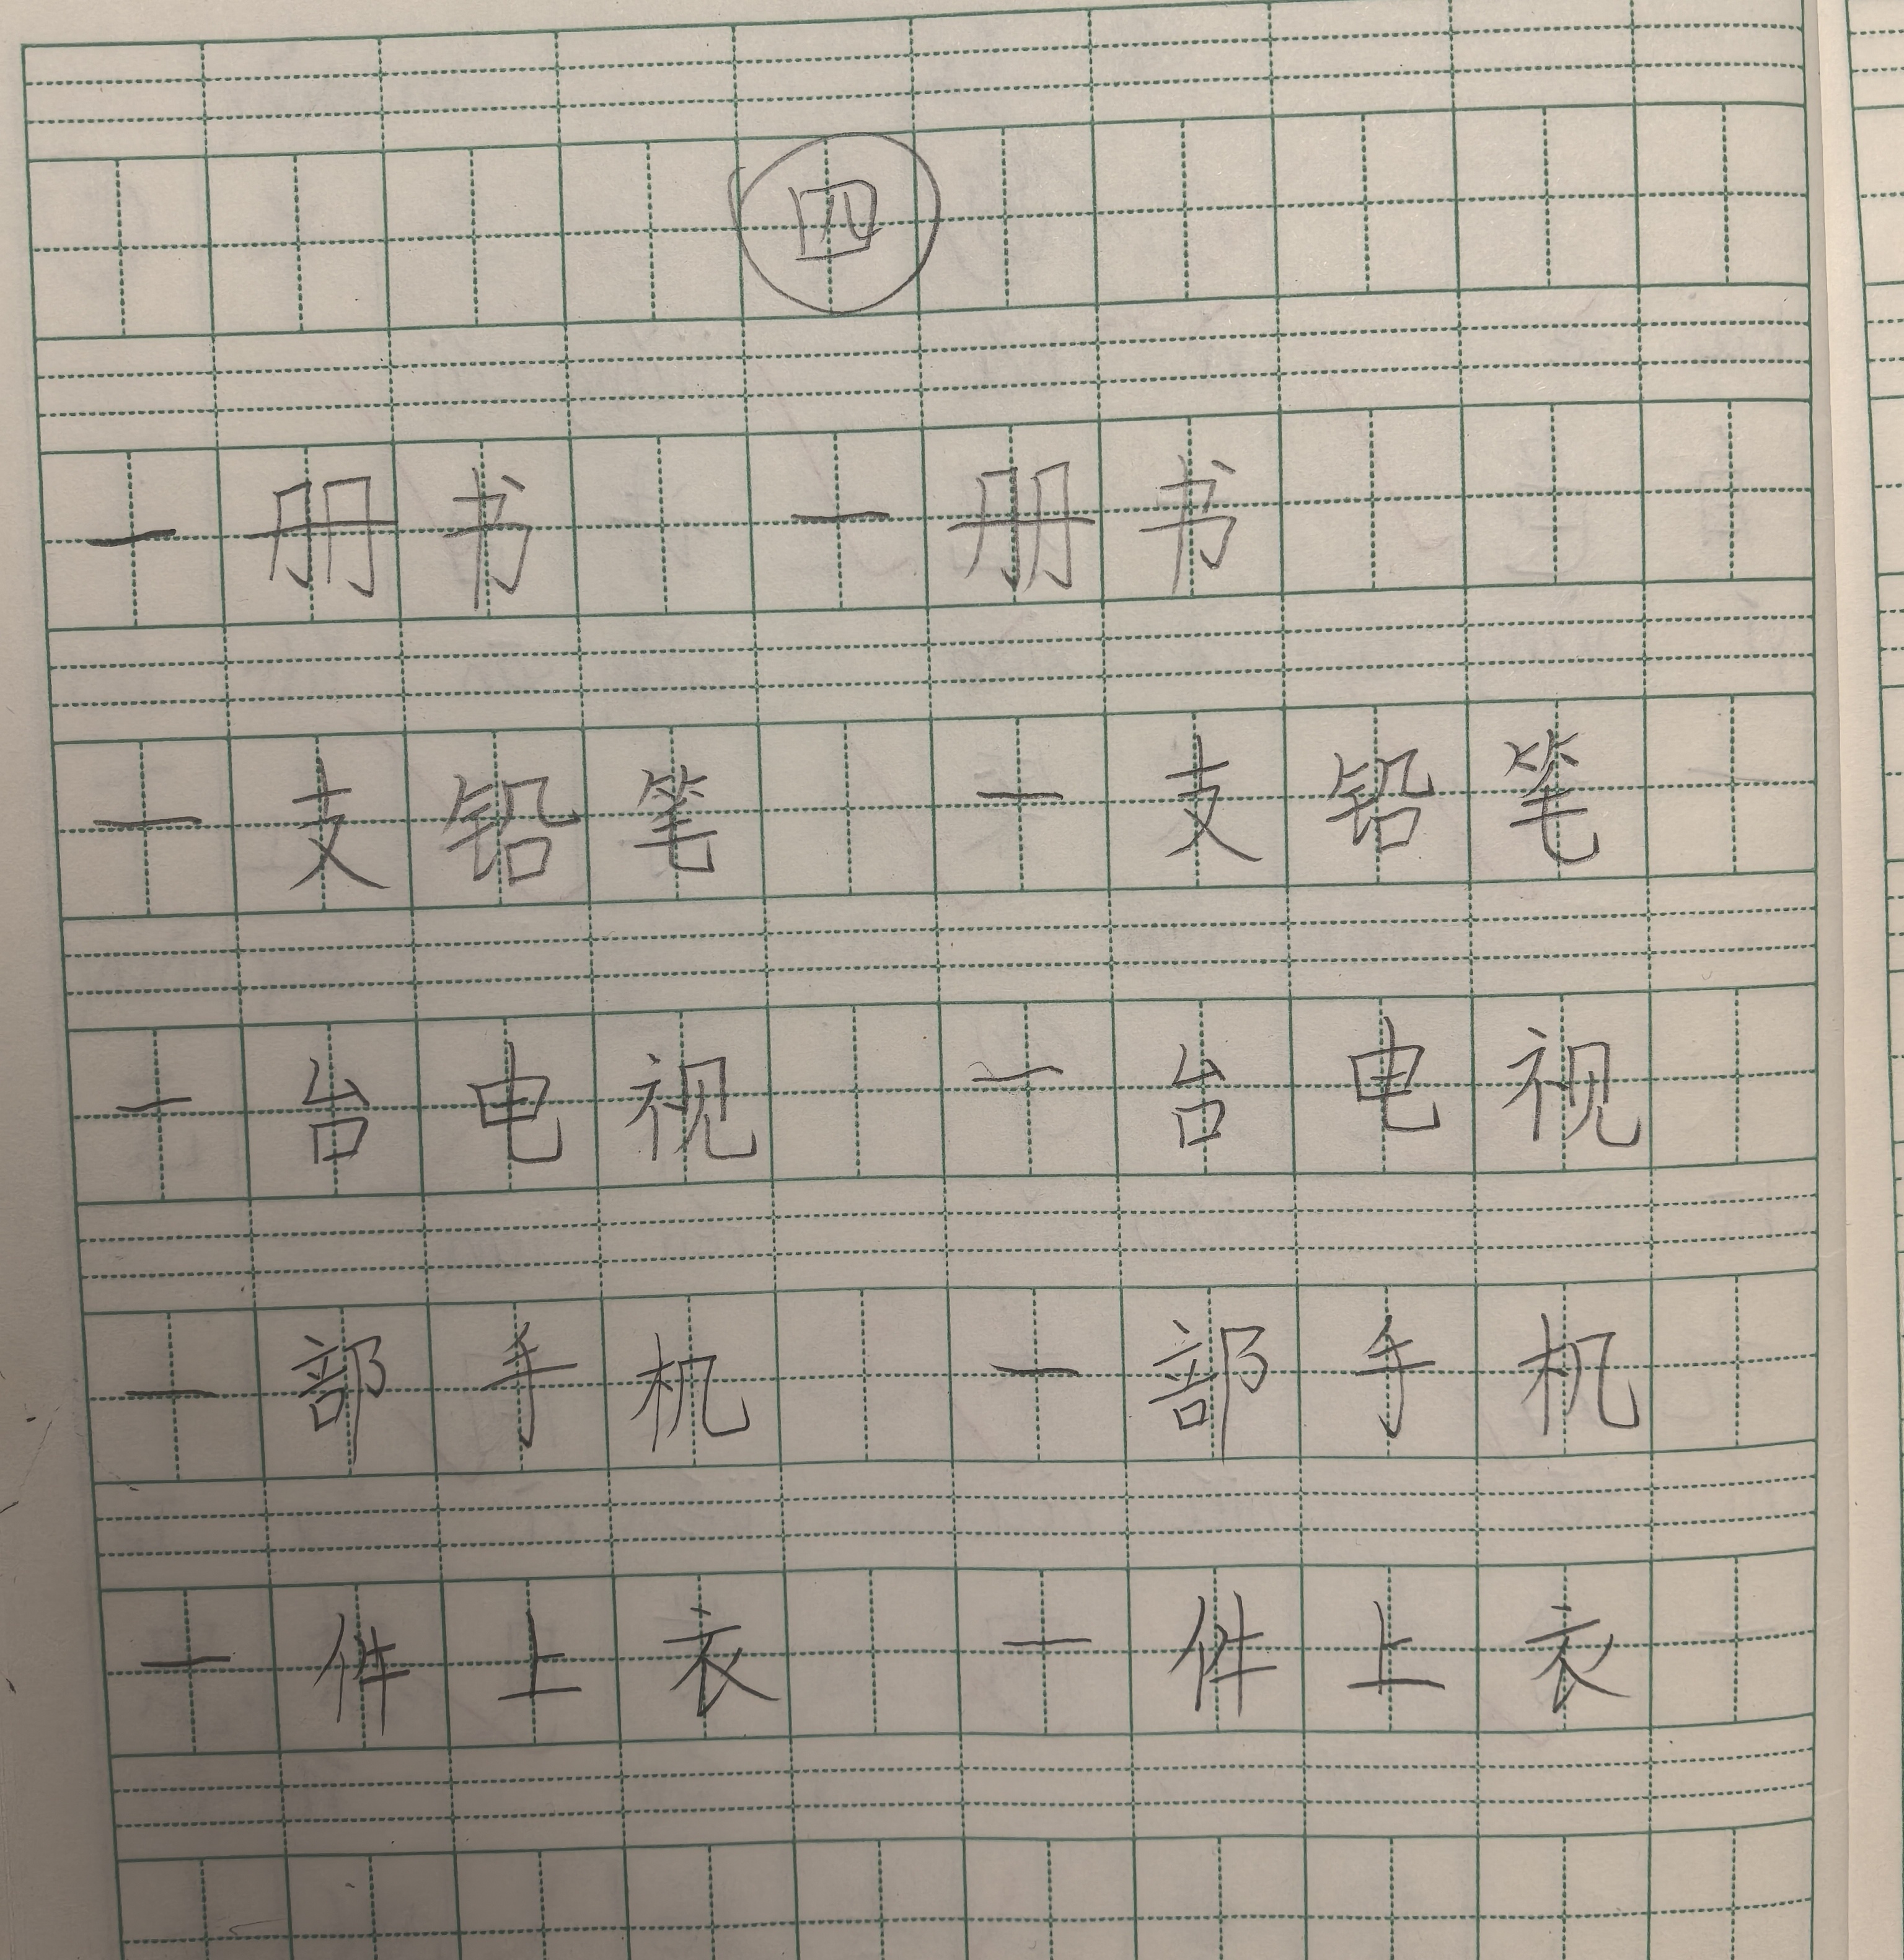 四
一册书 一册书
一支铅笔 一支铅笔
一台电视 一台电视
一部手机 一部手机
一件上衣 一件上衣